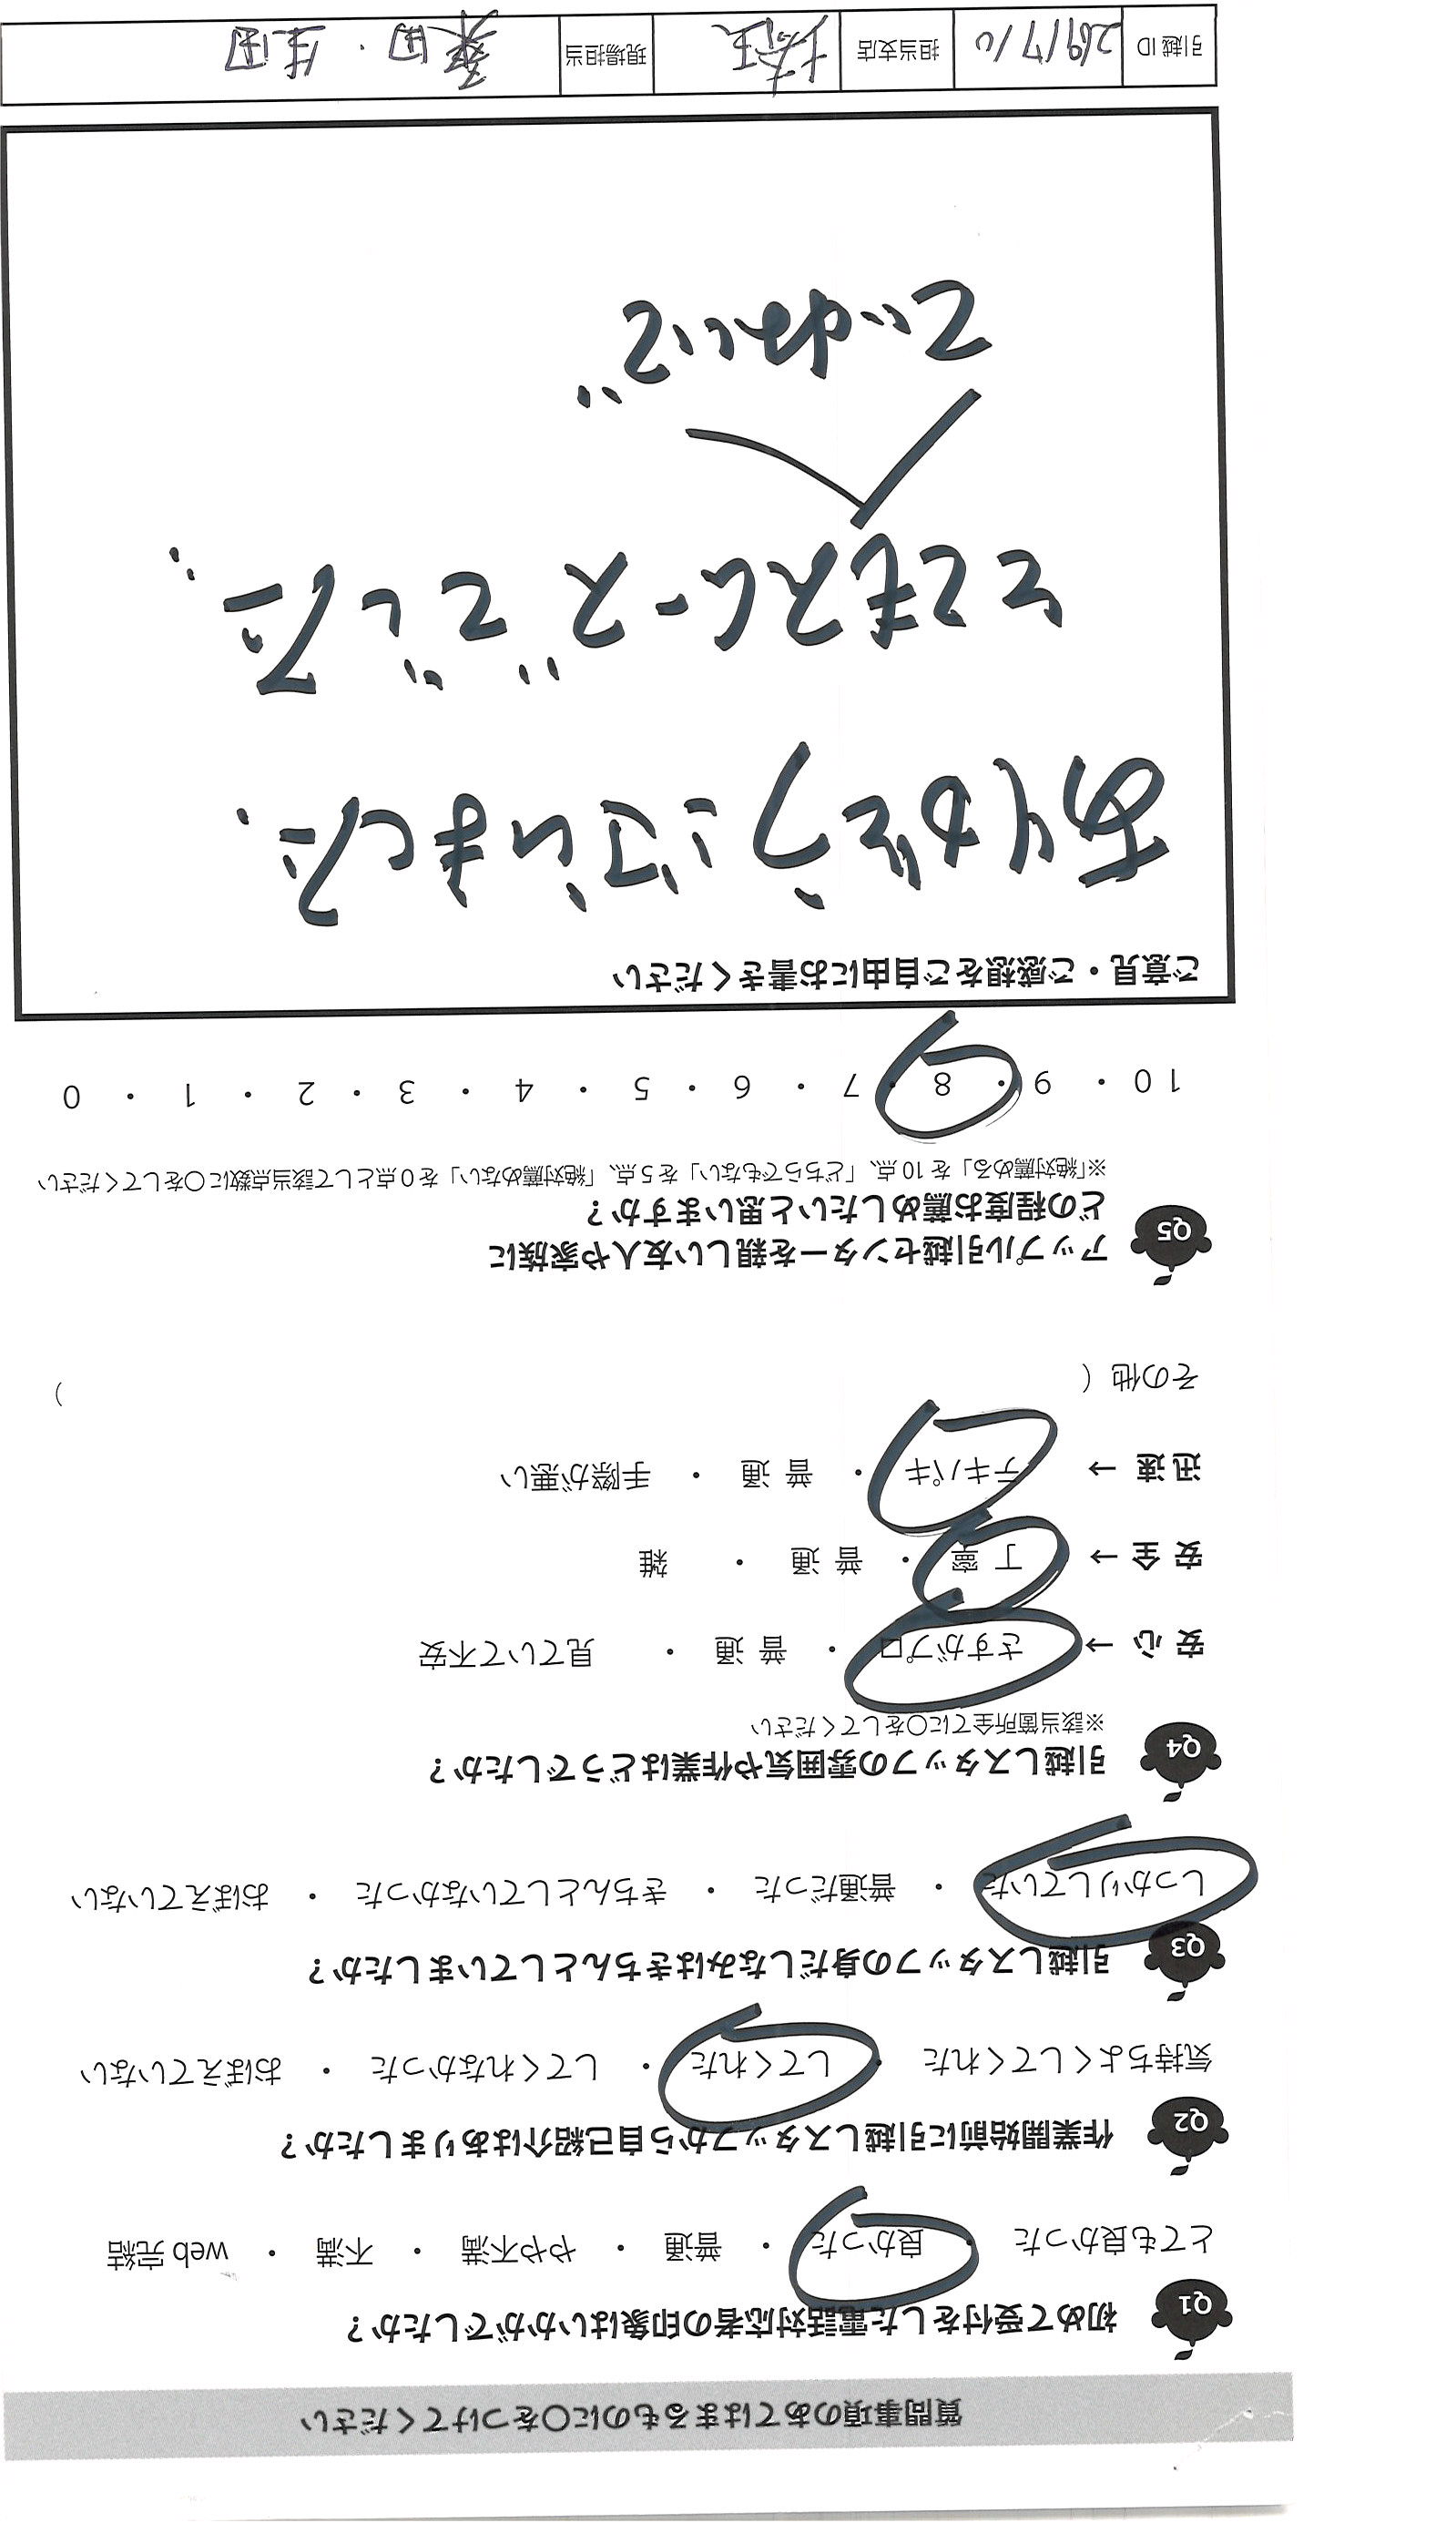 質問事項のあてはまるものに○をつけてください
Q1 初めて受付をした電話対応者の印象はいかがでしたか？
とても良かった ・ 良かった ・ 普通 ・ やや不満 ・ 不満 ・ web 完結
Q2 作業開始前に引越しスタッフから自己紹介はありましたか？
気持ちよくしてくれた ・ してくれた ・ してくれなかった ・ おぼえていない
Q3 引越しスタッフの身だしなみはきちんとしていましたか？
しっかりしていた ・ 普通だった ・ きちんとしていなかった ・ おぼえていない
Q4 引越しスタッフの雰囲気や作業はどうでしたか？
※該当箇所全てに○をしてください
安 心 → さすがプロ ・ 普 通 ・ 見ていて不安
安 全 → 丁 寧 ・ 普 通 ・ 雑
迅 速 → テキパキ ・ 普 通 ・ 手際が悪い
その他（ ）
Q5 アップル引越センターを親しい友人や家族に
どの程度お薦めしたいと思いますか？
※「絶対薦める」を 10 点、「どちらでもない」を 5 点、「絶対薦めない」を 0 点として該当点数に○をしてください
10 ・ 9 ・ 8 ・ 7 ・ 6 ・ 5 ・ 4 ・ 3 ・ 2 ・ 1 ・ 0
ご意見・ご感想をご自由にお書きください
ありがとうございました。
とてもスピードでした
ていねいで
引越 ID 担当支店 埼玉 現場担当 桑田・生田